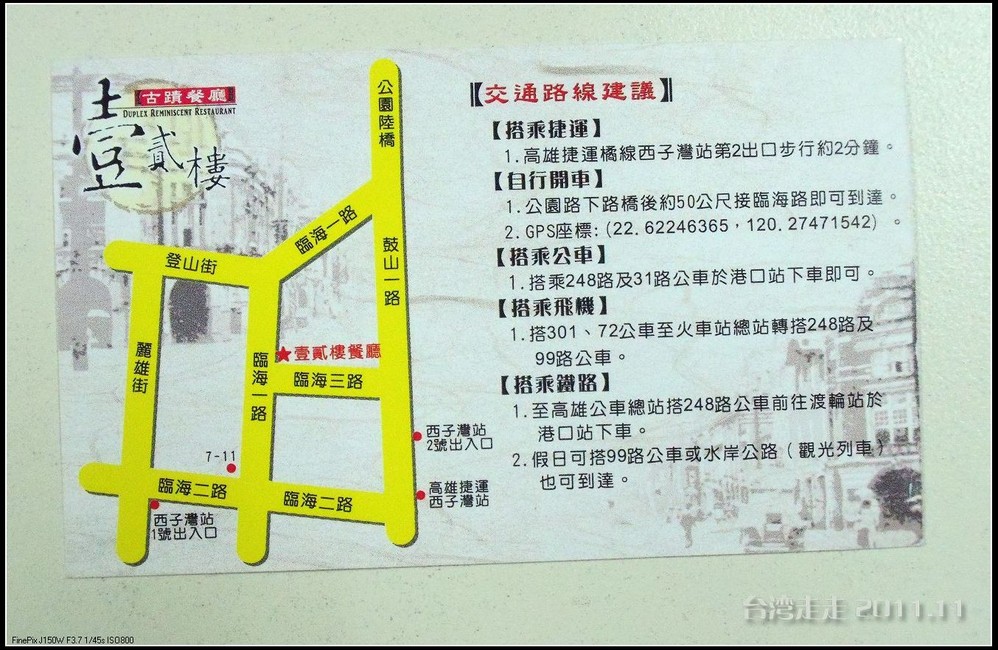 壹貳樓
古蹟餐廳
DUPLEX REMINISCENT RESTAURANT
公園陸橋
臨海一路
登山街
鼓山一路
麗雄街
臨海一路
★壹貳樓餐廳
臨海三路
西子灣站
2號出入口
7-11
臨海二路
臨海二路
高雄捷運
西子灣站
西子灣站
1號出入口
【交通路線建議】
【搭乘捷運】
1.高雄捷運橘線西子灣站第2出口步行約2分鐘。
【自行開車】
1.公園路下路橋後約50公尺接臨海路即可到達。
2.GPS座標:(22.62246365，120.27471542) 。
【搭乘公車】
1.搭乘248路及31路公車於港口站下車即可。
【搭乘飛機】
1.搭301、72公車至火車站總站轉搭248路及
99路公車。
【搭乘鐵路】
1.至高雄公車總站搭248路公車前往渡輪站於
港口站下車。
2.假日可搭99路公車或水岸公路（觀光列車）
也可到達。
台湾走走 2011.11
FinePix J150W F3.7 1/45s ISO800